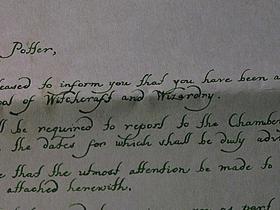 Potter,
eased to inform you that you have been a
ool of Witchcraft and Wizardry.
ll be required to report to the Chamber
the dates for which shall be duly advi
e that the utmost attention be made to
attached herewith.